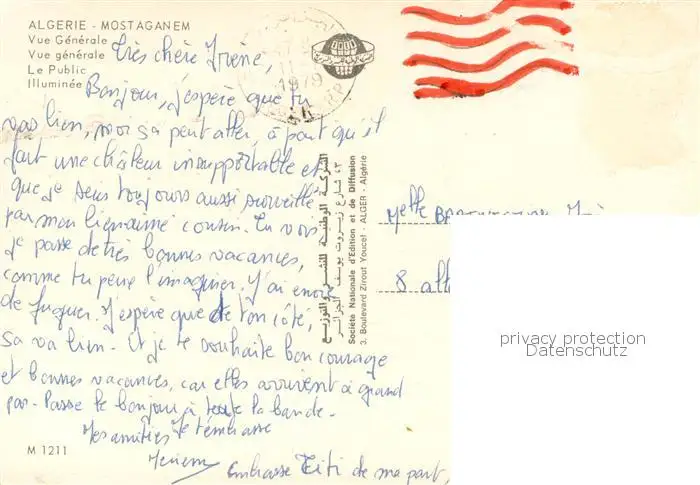 ALGERIE - MOSTAGANEM
Vue Générale
Vue générale
Le Public
Illuminée
Très chère Irène,
Bonjour, j'espère que tu
vas bien, moi sa peut aller, à part qu'il
fait une châleur insupportable et
que je suis toujours aussi surveillée
par mon bienaimé cousin. Tu vois
je passe de très bonnes vacances,
comme tu peux l'imaginer. J'ai envie
de fuguer. J'espère que de ton côté,
sa va bien. Et je te souhaite bon courage
et bonnes vacances, car elles arrivent à grand
pas. Passe le bonjour à toute la bande.
Mes amitiés Je t'embrasse
Meriem
Embrasse Titi de ma part.
M 1211
الشركة الوطنية للنشر والتوزيع
٤٣ شارع زيروت يوسف الجزائر
Société Nationale d'Edition et de Diffusion
3, Boulevard Zirout Youcef - ALGER - Algérie
1979
Melle
8 all
privacy protection
Datenschutz